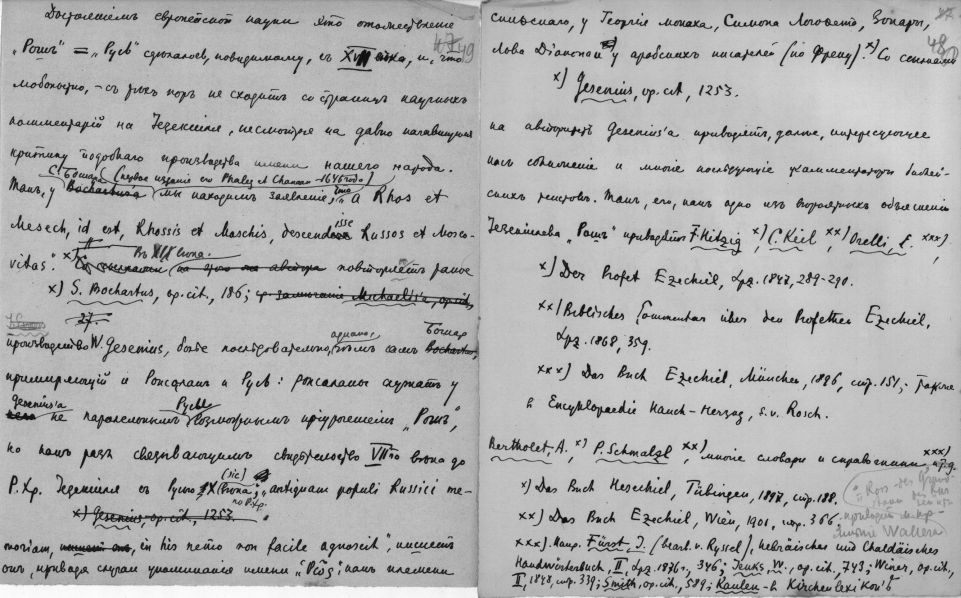 Достояніемъ европейской науки это отожествленіе
47 49
„Рошъ" = „Русь" сдѣлалось, повидимому, съ XVII вѣка, и, что
любопытно, – съ тѣхъ поръ не сходитъ со страницъ научныхъ
комментарій на Іезекіиля, несмотря на давно начавшуюся
критику подобнаго производства имени нашего народа.
(первое изданіе его Phaleg et Chanaan – 1646 года)
Такъ, у С. Бошара Bochartus'а мы находимъ заявленіе, что „a Rhos et
Mesech, id est, Rhossis et Moschis, descendisse Russos et Mosco-
Въ XIX вѣка.
vitas". x) повторяетъ ранѣе
x) S. Bochartus, op. cit., 186; op. cit.,
27.
производство W. Gesenius, болѣе послѣдовательно, однако, чѣмъ самъ Бошаръ Bochartus,
примиряющій и Роксаланъ и Русь: роксаланы служатъ у
Gesenius'а не параллельнымъ Руси возможнымъ пріуроченіемъ „Рошъ",
но какъ разъ связывающимъ свидѣтельство VII-го вѣка до
Р. Хр. Іезекіиля съ Русью IX (sic) вѣка по Р. Хр.: „antiquam populi Russici me-
x) Gesenius op. cit., 1253.
moriam, in his nemo non facile agnoscit", пишетъ
онъ, приводя случаи упоминанія имени „Ῥῶς", какъ племени
скиѳскаго, у Георгія монаха, Симона Логоѳета, Зонары, 37
48
Льва Діакона и у арабскихъ писателей (по Френу). x) Со ссылками
x) Gesenius, op. cit., 1253.
на авторитетъ Gesenius'а приводятъ, далѣе, интересующее
насъ сближеніе и многіе послѣдующіе комментаторы библей-
скихъ текстовъ. Такъ, его, какъ одно изъ вѣроятныхъ объясненій
Іезекіилева „Рошъ" приводятъ F. Hitzig x), C. Keil xx), Orelli, C. xxx),
x) Der Profet Ezechiel, Lpz. 1847, 289–290.
xx) Biblischer Commentar über den Propheten Ezechiel,
Lpz. 1868, 359.
xxx) Das Buch Ezechiel, München, 1896, стр. 151; также
въ Encyklopaedie Hauck–Herzog, s. v. Rosch.
Bertholet, A. x), P. Schmalzl xx), многіе словари и справочники xxx) и т. д.
x) Das Buch Hesechiel, Tübingen, 1897, стр. 188.
xx) Das Buch Ezechiel, Wien, 1901, стр. 366.
приводитъ
мнѣніе
xxx). Напр. Fürst, J. (bearb. v. Ryssel), Hebräisches und Chaldäisches
Handwörterbuch, II, Lpz. 1876 г., 346; Jenks, W., op. cit., 743; Winer, op. cit.,
II, 1848, стр. 339; Smith, op. cit., 589; Kaulen – въ Kirchenlexikon'ѣ